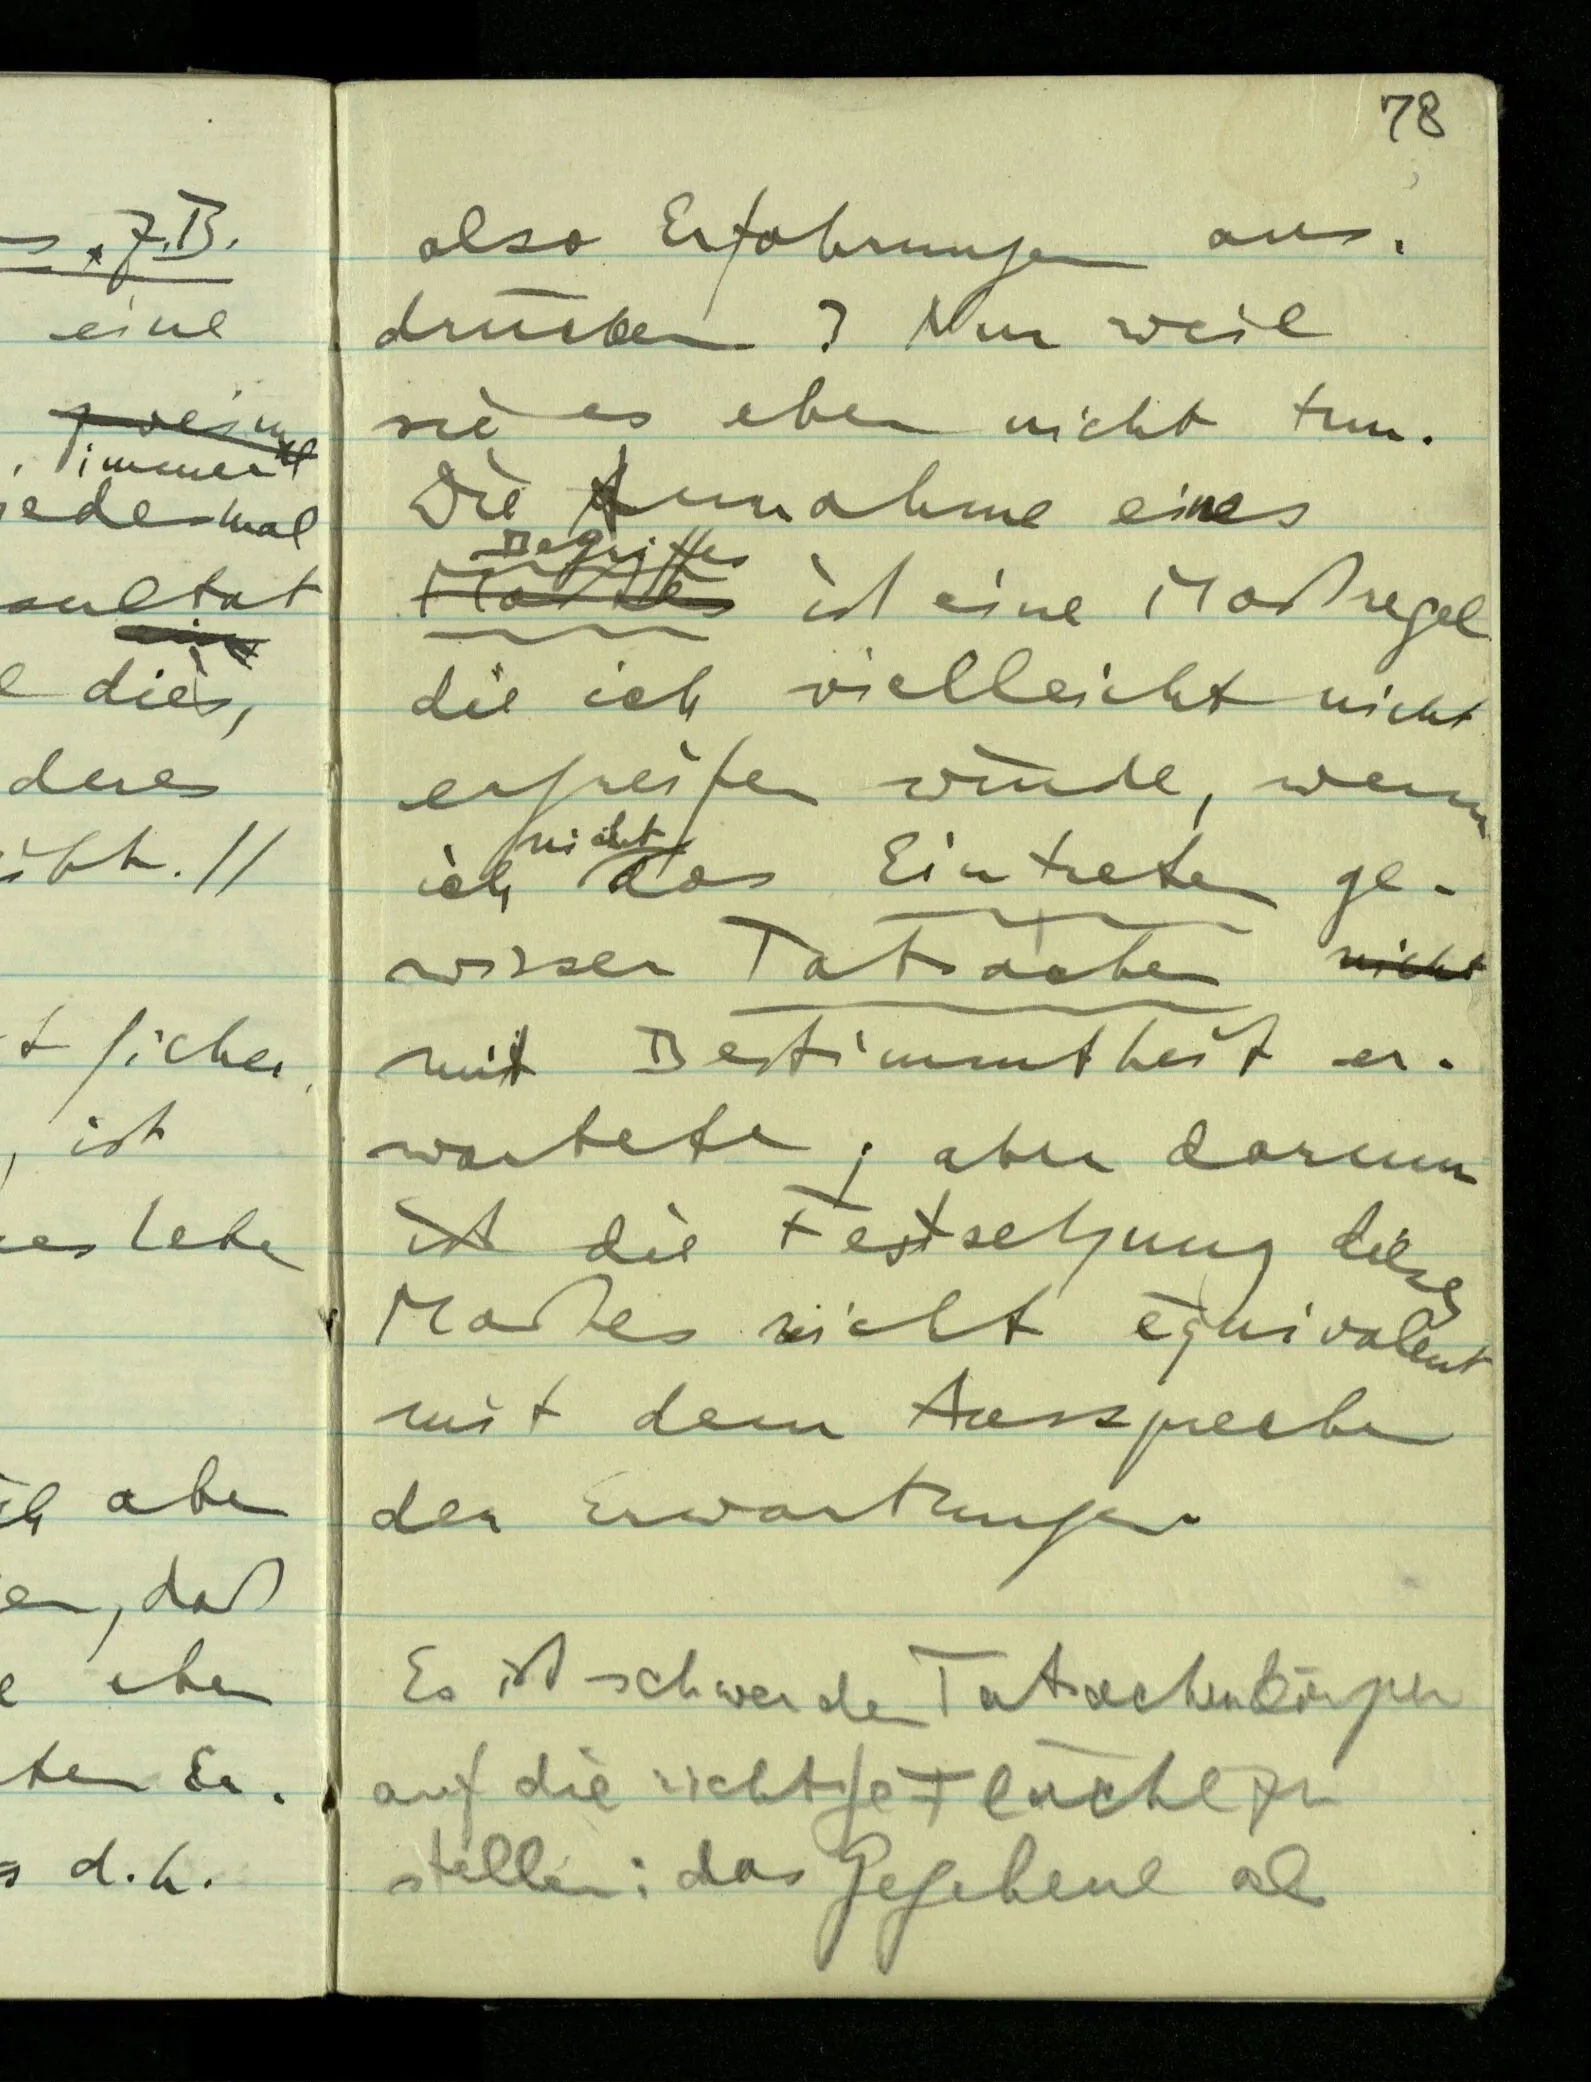 78
z.B.
eine
immer
jedesmal
dies,
deres
//
sicher,
ist
aber
daß
eben
ten Er-
d.h.
also Erfahrungen aus-
drücken? Nur weil
sie es eben nicht tun.
Die Annahme eines
Begriffes
Maßes ist eine Maßregel
die ich vielleicht nicht
ergreifen würde, wenn
nicht
ich das Eintreten ge-
wisser Tatsachen nicht
mit Bestimmtheit er-
wartete; aber darum
ist die Festsetzung dieses
Maßes nicht equivalent
mit dem Aussprechen
der Erwartungen.
Es ist schwer den Tatsachenkörper
auf die richtige Fläche zu
stellen: das Gegebene als